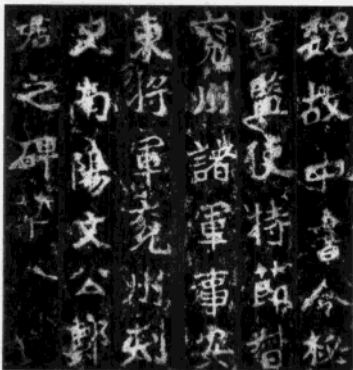 魏故中書令秘
書監使持節督
兖州諸軍事安
東將軍兖州刺
史南陽文公鄭
君之碑草